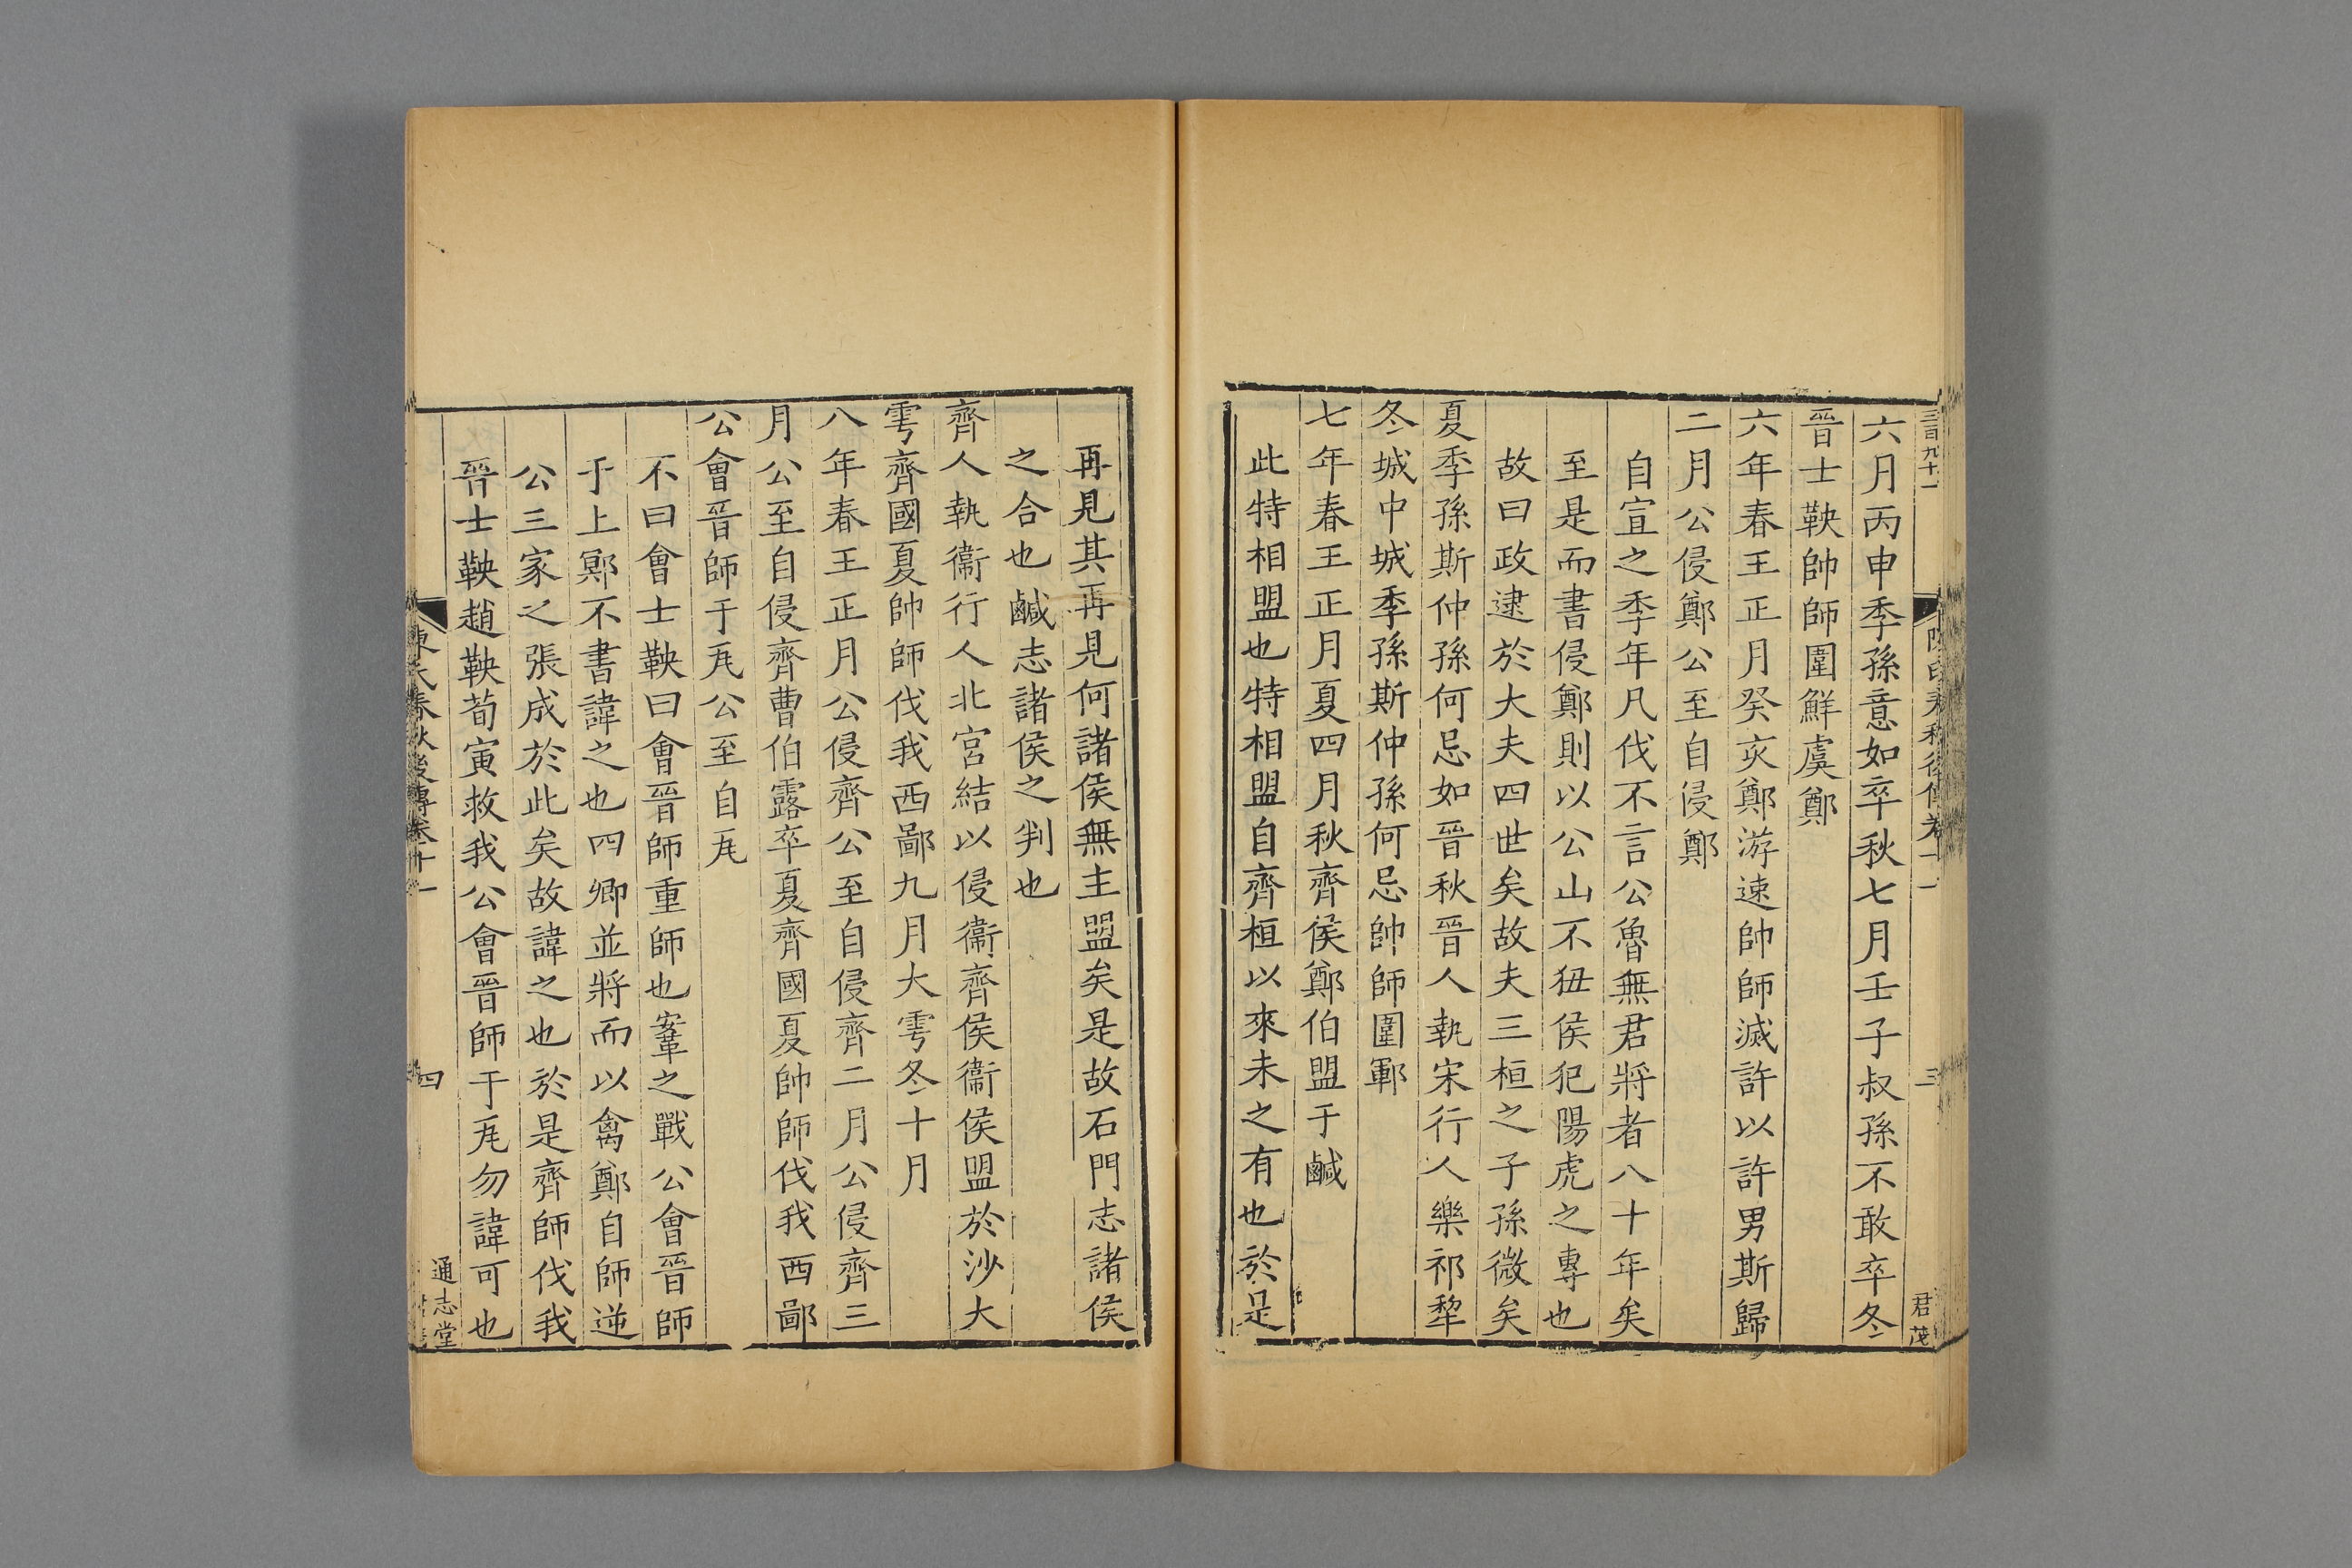 三百九十一
三
君茂
六月丙申季孫意如卒秋七月壬子叔孫不敢卒冬
晉士鞅帥師圍鮮虞鄭
六年春王正月癸亥鄭游速帥師滅許以許男斯歸
二月公侵鄭公至自侵鄭
自宣之季年凡伐不言公魯無君將者八十年矣
至是而書侵鄭則以公山不狃侯犯陽虎之專也
故曰政逮於大夫四世矣故夫三桓之子孫微矣
夏季孫斯仲孫何忌如晉秋晉人執宋行人樂祁犂
冬城中城季孫斯仲孫何忌帥師圍鄆
七年春王正月夏四月秋齊侯鄭伯盟于鹹
此特相盟也特相盟自齊桓以來未之有也於是
再見其再見何諸侯無主盟矣是故石門志諸侯
之合也鹹志諸侯之判也
齊人執衞行人北宮結以侵衞齊侯衞侯盟於沙大
雩齊國夏帥師伐我西鄙九月大雩冬十月
八年春王正月公侵齊公至自侵齊二月公侵齊三
月公至自侵齊曹伯露卒夏齊國夏帥師伐我西鄙
公會晉師于瓦公至自瓦
不曰會士鞅曰會晉師重師也鞌之戰公會晉師
于上鄍不書諱之也四卿並將而以禽鄭自師逆
公三家之張成於此矣故諱之也於是齊師伐我
晉士鞅趙鞅荀寅救我公會晉師于瓦勿諱可也
陳氏春秋後傳卷十一
四
通志堂